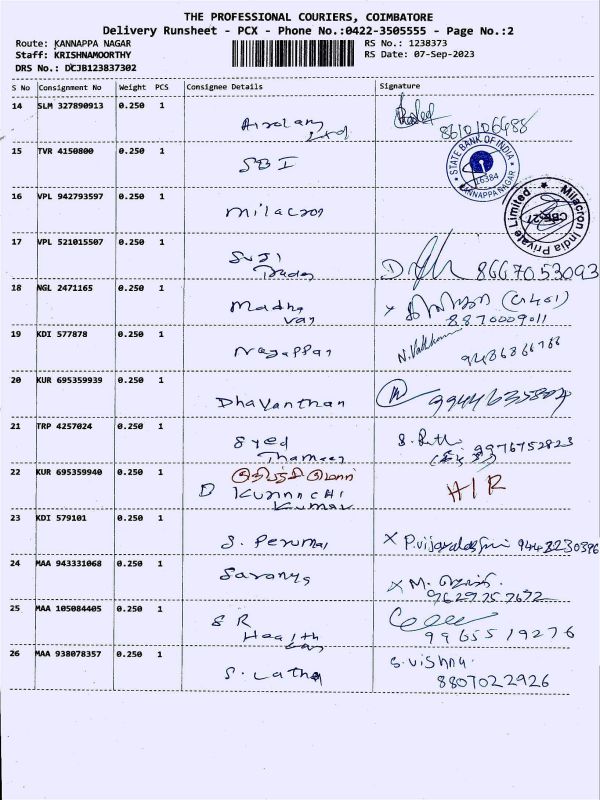 THE PROFESSIONAL COURIERS, COIMBATORE
Delivery Runsheet - PCX - Phone No.:0422-3505555 - Page No.:2
Route: KANNAPPA NAGAR RS No.: 1238373
Staff: KRISHNAMOORTHY RS Date: 07-Sep-2023
DRS No.: DCJB123837302
S No Consignment No Weight PCS Consignee Details Signature
14 SLM 327890913 0.250 1
8610106488
15 TVR 4150800 0.250 1 SBI
STATE BANK OF INDIA
16384
KANNAPPA NAGAR
16 VPL 942793597 0.250 1 milacron
Milacron India Private Limited
CBE-27
17 VPL 521015507 0.250 1 Suji
8667053093
18 NGL 2471165 0.250 1 Madha
van
8870009011
19 KDI 577878 0.250 1 Nagappan
9486866766
20 KUR 695359939 0.250 1 Dhavanthan
21 TRP 4257024 0.250 1 Syed
Thameem 9976752823
22 KUR 695359940 0.250 1
D KUNNACHI H/R
Kumar
23 KDI 579101 0.250 1 S. Perumal
X P.vijayalakshmi
24 MAA 943331068 0.250 1 Saranya
X M.
9629757672
25 MAA 105084405 0.250 1 SR
Health
Care 9965519276
26 MAA 938078357 0.250 1 S. Latha S. Vishnu.
8807022926